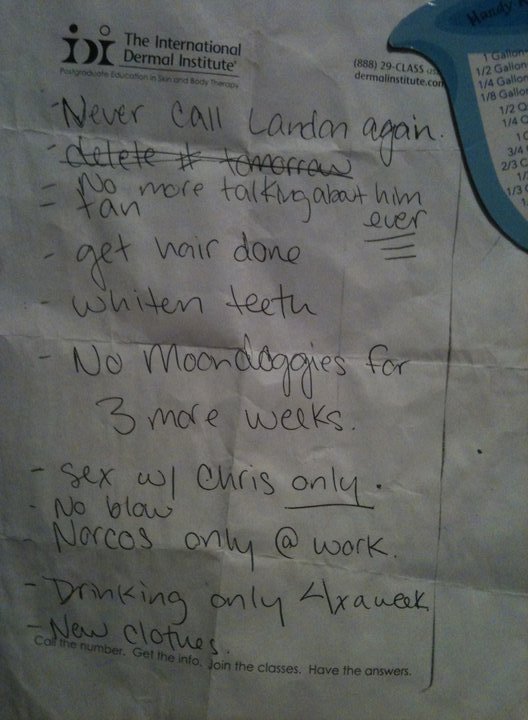 The International
Dermal Institute®
Postgraduate Education in Skin and Body Therapy
(888) 29-CLASS
dermalinstitute.com
-Never call Landon again.
- delete # tomorrow
- No more talking about him
ever
- tan
- get hair done
- whiten teeth
- No Moondoggies for
3 more weeks.
- sex w/ Chris only.
- No blow
- Norcos only @ work.
- Drinking only 4xaweek
- New clothes.
Call the number. Get the info. Join the classes. Have the answers.
1 Gallon
1/2 Gallon
1/4 Gallon
1/8 Gallon